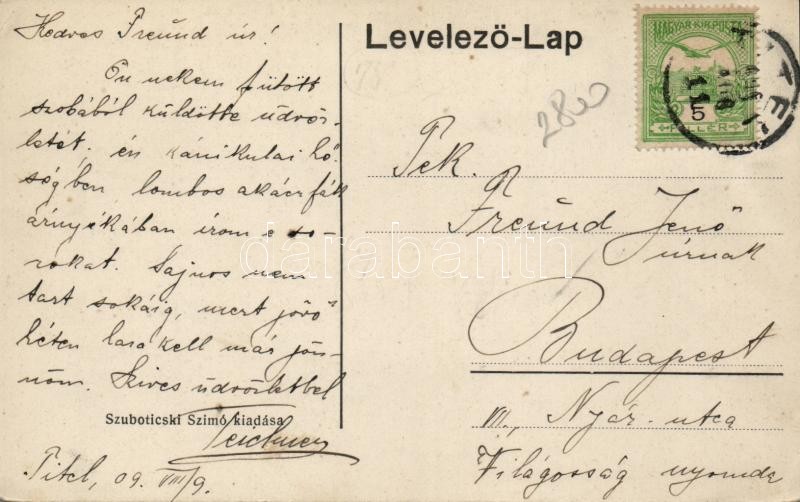 Kedves Freund úr!
Ön nekem fűtött
szobából küldötte üdvöz-
letét, én kánikulai hő-
ségben lombos akáczfák
árnyékában írom e so-
rokat. Sajnos nem
tart sokáig, mert jövő
héten haza kell már jön-
nöm. Szives üdvözlettel
Szuboticski Szimó kiadása
Teichner
Titel, 09. VIII/9.
Levelező-Lap
MAGYAR KIR. POSTA
5
FILLÉR
2800
Tek.
Freund Jenő
úrnak
Budapest
VII., Nyár-utca
Világosság nyomda
darabanth